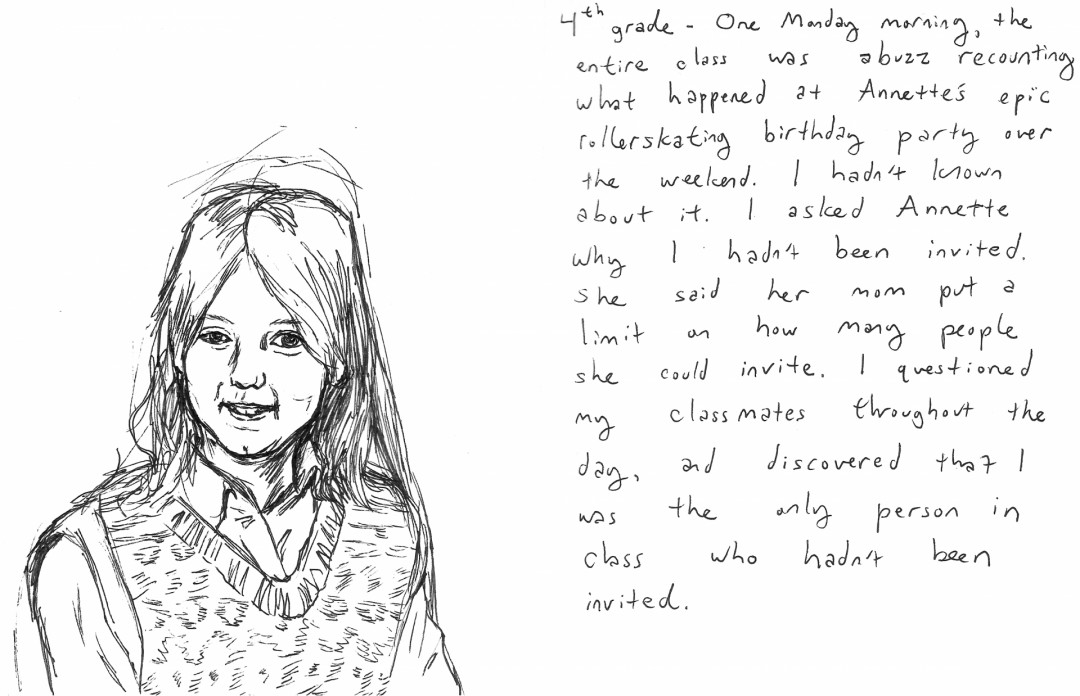 4th grade - One Monday morning, the
entire class was abuzz recounting
what happened at Annette's epic
rollerskating birthday party over
the weekend. I hadn't known
about it. I asked Annette
why I hadn't been invited.
She said her mom put a
limit on how many people
she could invite. I questioned
my classmates throughout the
day, and discovered that I
was the only person in
class who hadn't been
invited.